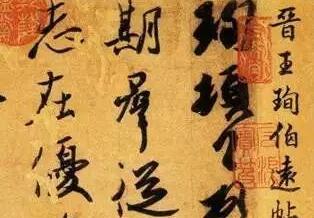 晉王珣伯遠帖
珣頓首
期羣從
志在優